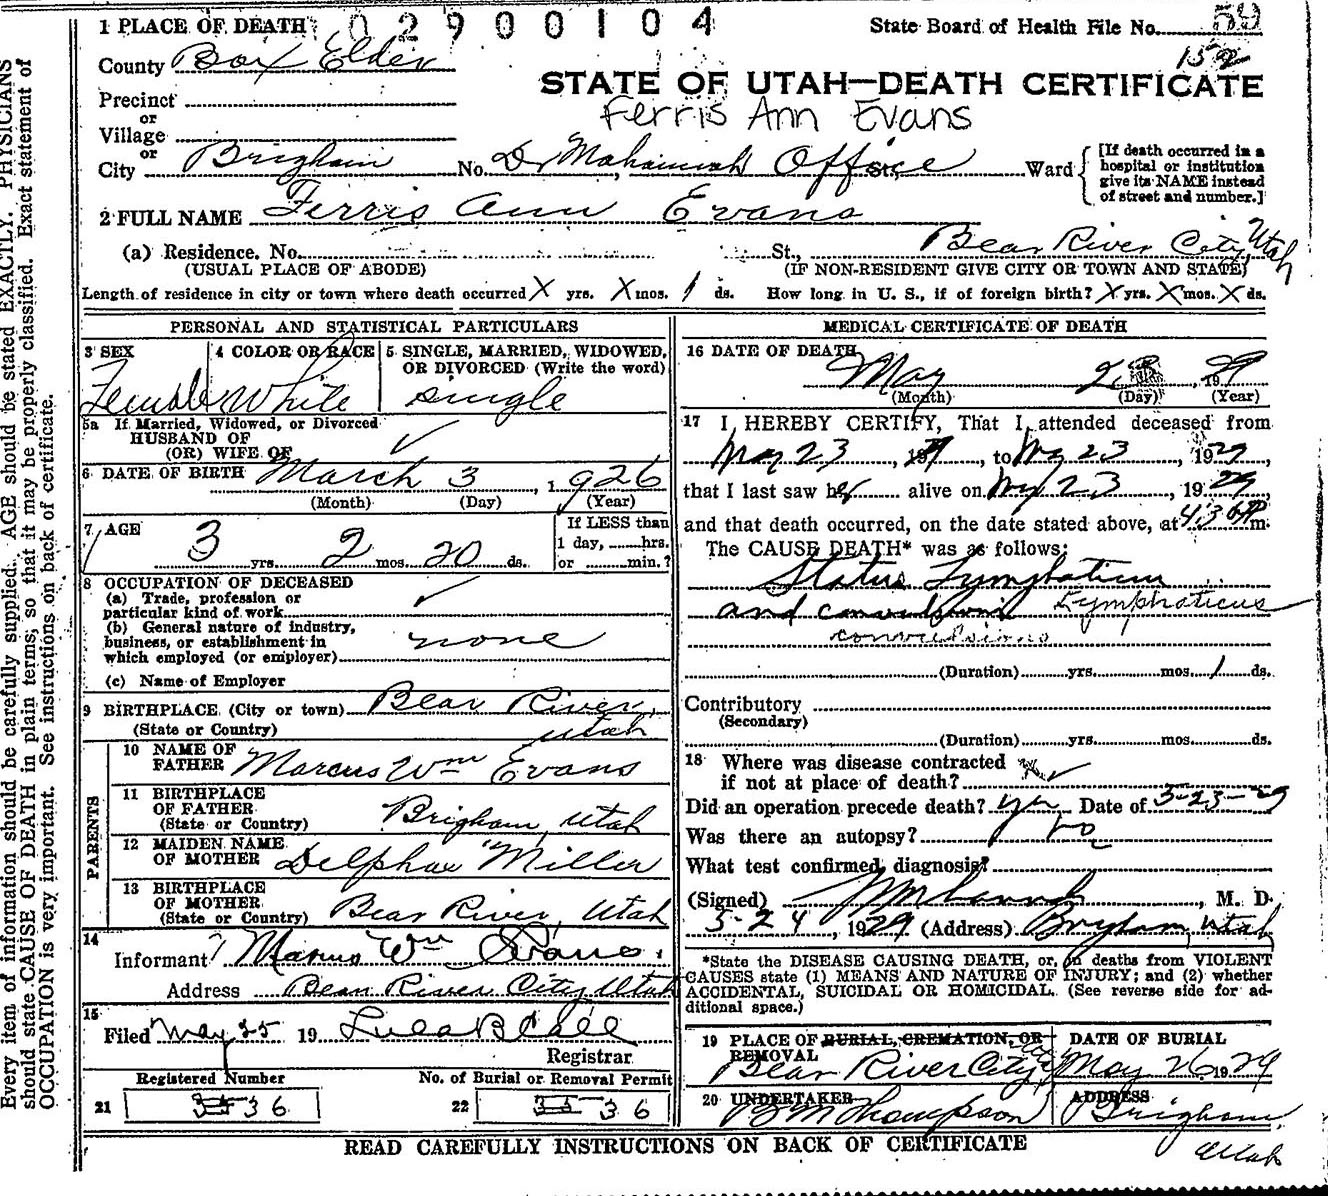 1 PLACE OF DEATH 02900104 State Board of Health File No. 59
152
County Box Elder
STATE OF UTAH—DEATH CERTIFICATE
Precinct
or
Ferris Ann Evans
Village
or
City Brigham No. Dr Office St., Ward [If death occurred in a hospital or institution give its NAME instead of street and number.]
2 FULL NAME Ferris Ann Evans
(a) Residence. No. St., Bear River City, Utah
(USUAL PLACE OF ABODE) (IF NON-RESIDENT GIVE CITY OR TOWN AND STATE)
Length of residence in city or town where death occurred X yrs. X mos. 1 ds. How long in U. S., if of foreign birth? X yrs. X mos. X ds.
PERSONAL AND STATISTICAL PARTICULARS
3 SEX Female
4 COLOR OR RACE White
5 SINGLE, MARRIED, WIDOWED, OR DIVORCED (Write the word) single
5a If Married, Widowed, or Divorced
HUSBAND OF
(OR) WIFE OF ✓
6 DATE OF BIRTH March 3, 1926
(Month) (Day) (Year)
7 AGE 3 yrs. 2 mos. 20 ds.
If LESS than
1 day, hrs.
or min.?
8 OCCUPATION OF DECEASED
(a) Trade, profession or
particular kind of work ✓
(b) General nature of industry,
business, or establishment in
which employed (or employer) none
(c) Name of Employer
9 BIRTHPLACE (City or town) Bear River,
(State or Country) Utah
PARENTS
10 NAME OF
FATHER Marcus Wm Evans
11 BIRTHPLACE
OF FATHER
(State or Country) Brigham, Utah
12 MAIDEN NAME
OF MOTHER Miller
13 BIRTHPLACE
OF MOTHER
(State or Country) Bear River, Utah
14
Informant Marcus Wm Evans.
Address Bear River City, Utah
15
Filed May 25 19
Registrar
Registered Number No. of Burial or Removal Permit
21 35 36 22 35 36
MEDICAL CERTIFICATE OF DEATH
16 DATE OF DEATH
May 23, 1929
(Month) (Day) (Year)
17 I HEREBY CERTIFY, That I attended deceased from
May 23, 1929, to May 23, 1929,
that I last saw her alive on May 23, 1929,
and that death occurred, on the date stated above, at 4:30 P m.
The CAUSE DEATH* was as follows:
Status Lymphaticus
and convulsions Lymphaticus
convulsions
(Duration) yrs. mos. 1 ds.
Contributory
(Secondary)
(Duration) yrs. mos. ds.
18 Where was disease contracted
if not at place of death? ✓
Did an operation precede death? yes Date of 5-23-29
Was there an autopsy? no
What test confirmed diagnosis?
(Signed) , M. D.
5-24, 1929 (Address) Brigham, Utah
*State the DISEASE CAUSING DEATH, or, in deaths from VIOLENT
CAUSES state (1) MEANS AND NATURE OF INJURY; and (2) whether
ACCIDENTAL, SUICIDAL OR HOMICIDAL. (See reverse side for ad-
ditional space.)
19 PLACE OF BURIAL, CREMATION, OR
REMOVAL
Bear River City
DATE OF BURIAL
May 26 1929
20 UNDERTAKER
B M Thompson
ADDRESS
Brigham,
Utah
READ CAREFULLY INSTRUCTIONS ON BACK OF CERTIFICATE
Every item of information should be carefully supplied. AGE should be stated EXACTLY. PHYSICIANS
should state CAUSE OF DEATH in plain terms, so that it may be properly classified. Exact statement of
OCCUPATION is very important. See instructions on back of certificate.